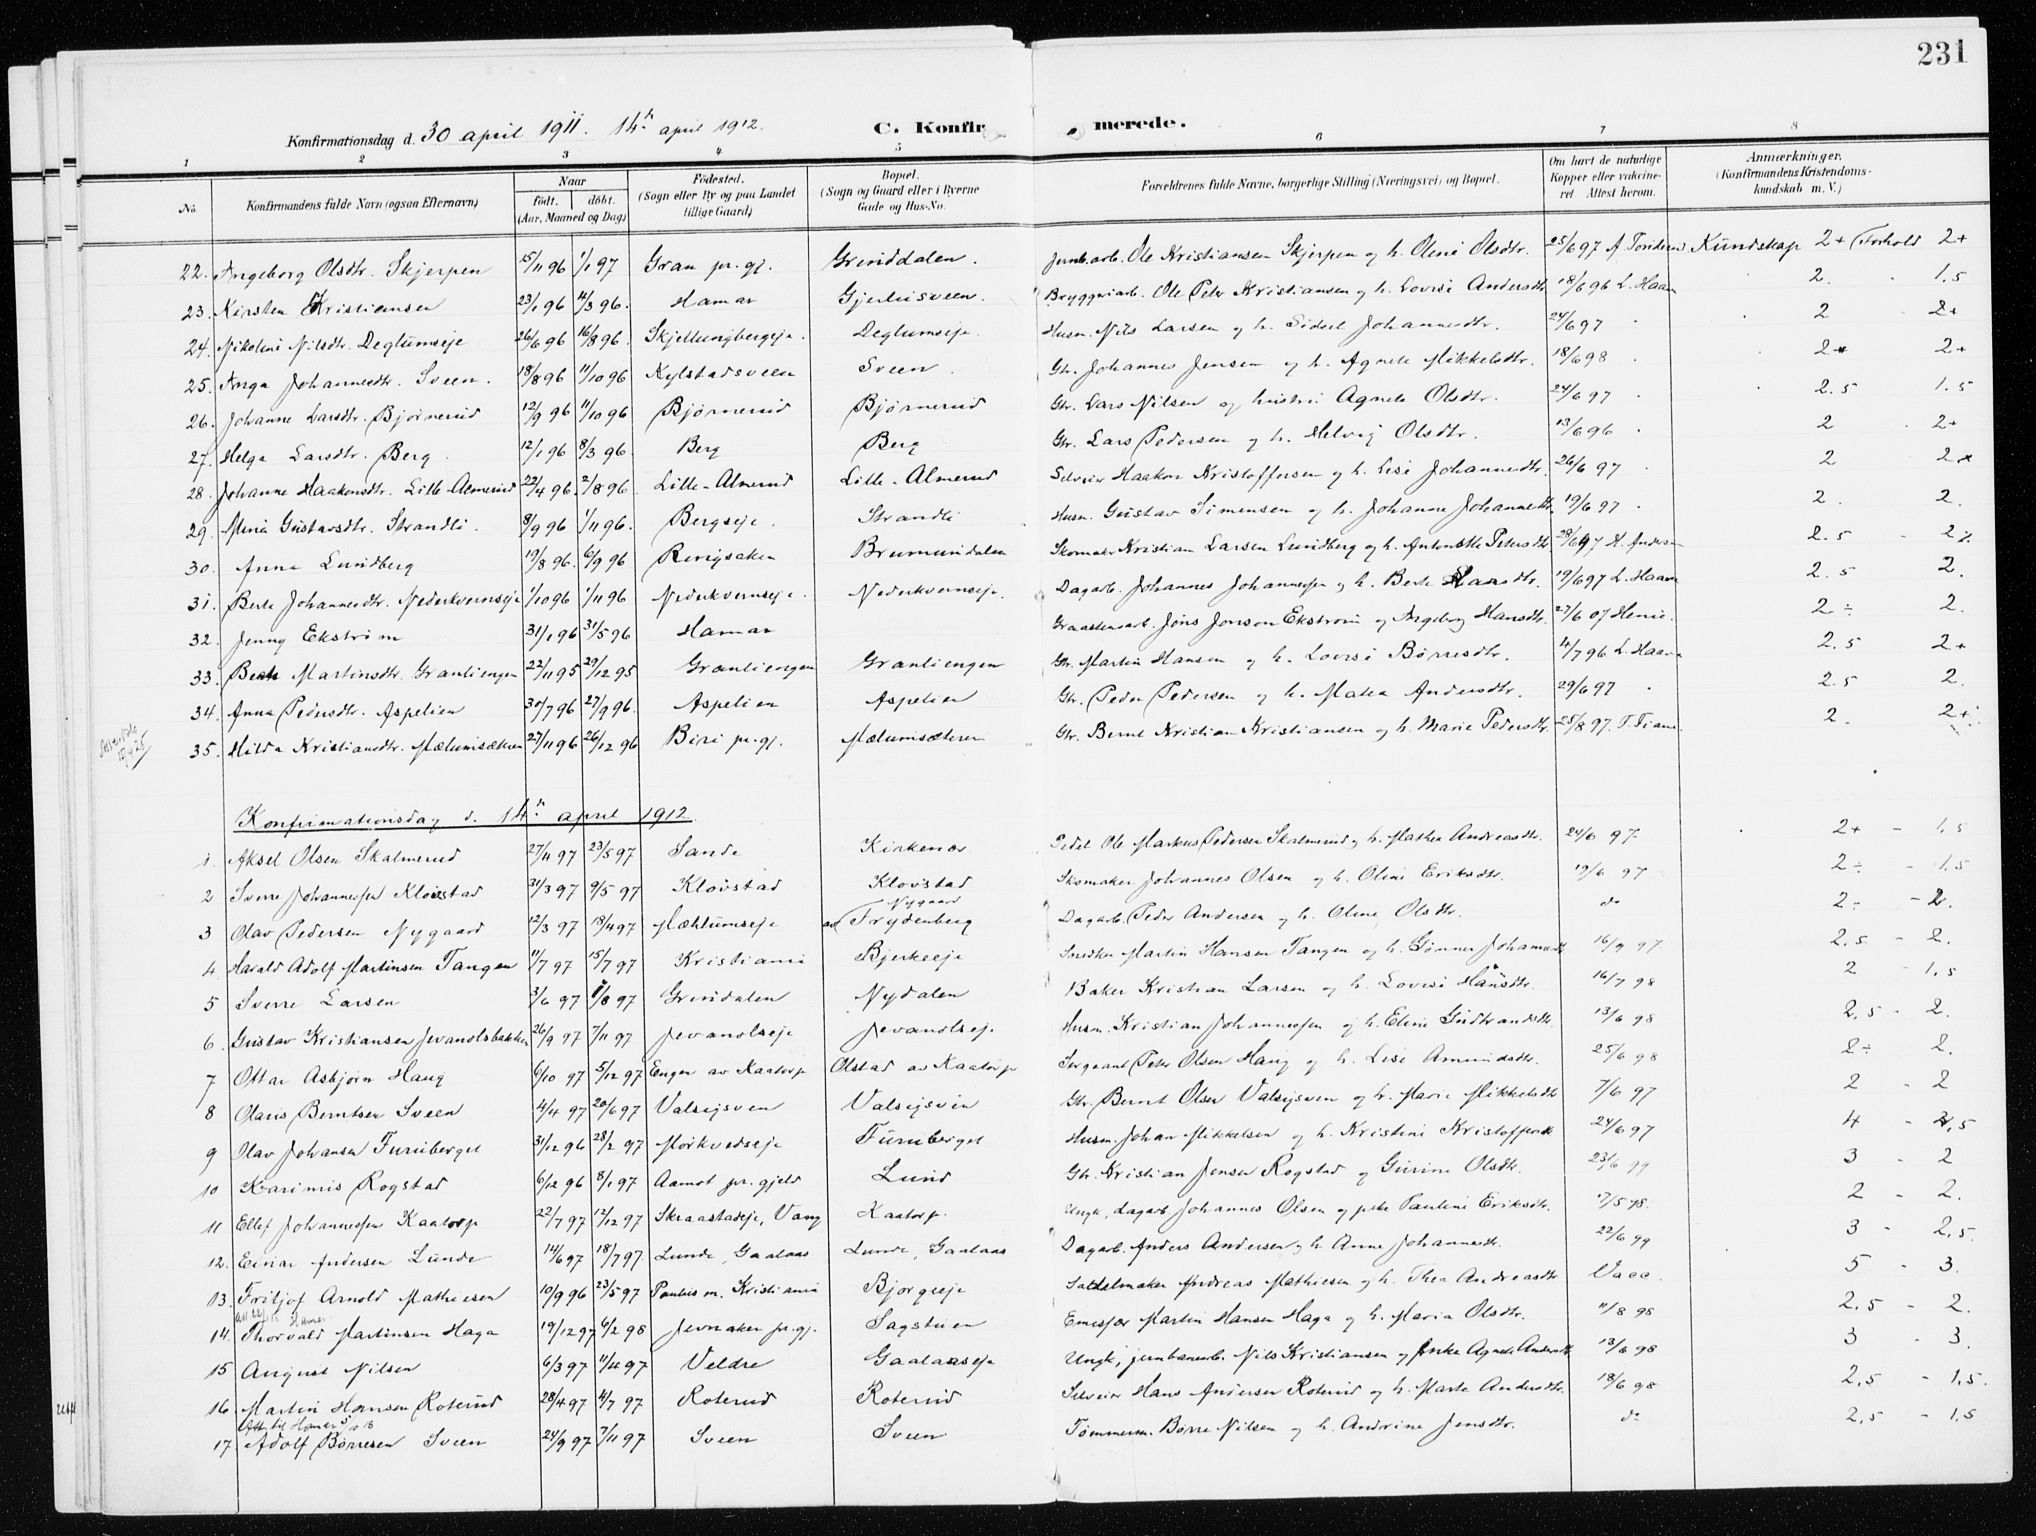 231
Konfirmationsdag d. 30 april 1911. 14de april 1912. C. Konfirmerede.
1 2 3 4 5 6 7 8
No. Konfirmandens fulde Navn (ogsaa Efternavn) Naar født. døbt. (Aar, Maaned og Dag) Fødested. (Sogn eller By og paa Landet tillige Gaard) Bopæl. (Sogn og Gaard eller i Byerne Gade og Hus-No. Forældrenes fulde Navne, borgerlige Stilling (Næringsvei) og Bopæl. Om havt de naturlige Kopper eller vaccineret Attest herom. Anmærkninger. (Konfirmandens Kristendomskundskab m. V.)
22. Ingeborg Olsdtr. Skjerpen 15/11 96 1/1 97 Gran pr.gj. Grinddalen. Jernb.arb. Ole Kristiansen Skjerpen og h. Oline Olsdtr. 25/6 97 Kundskap 2+ Forhold 2+
23. Kirsten Kristiansen 23/1 96 4/3 96. Hamar Gjerlusveen. Bryggeriarb. Ole Peter Kristiansen og h. Lovise Andersdtr. 18/6 96 L. Haan 2. 1.5
24. Nikoline Nilsdtr. Deglumseje 26/6 96 16/8 96. Skjellungbergeje. Deglumseje. Husm. Nils Larsen og h. Siderl Johannesdtr. 24/6 97 2 2+
25. Inga Johannesdtr. Sveen. 18/8 96 11/10 96 Kylstadsveen Sveen. Gbr. Johannes Jensen og h. Agnete Mikkelsdtr. 18/6 98 2+ 2+
26. Johanne Larsdtr. Bjørnerud 12/9 96 11/10 96 Bjørnerud Bjørnerud Gbr. Lars Nilsen og hustru Agnete Olsdtr. 24/6 97 2.5 1.5
27. Helga Larsdtr. Berg. 12/1 96 8/3 96. Berg Berg Gbr. Lars Pedersen og h. Helvig Olsdtr. 13/6 96 2 2+
28. Johanne Haakonsdtr. Lille-Almerud 22/4 96. 2/8 96. Lille-Almerud Lille-Almerud Selveier Haakon Kristoffersen og h. Lise Johannesdtr. 26/6 97 2 2+
29. Mina Gustavsdtr. Strandli. 8/9 96 1/11 96. Bergseje. Strandli Husm. Gustav Simensen og h. Johanne Johannesdtr. 19/6 97 2. 2.
30. Anna Lundberg 19/8 96. 6/9 96 Ringsaker Brumunddalen Skomaker Kristian Larsen Lundberg og h. Antonette Petersdtr. 28/6 97 2.5 2
31. Berte Johannesdtr. Nederkvernseje 1/10 96 1/11 96 Nederkvernseje. Nederkvernseje. Dagarb. Johannes Johannessen og h. Berte Hansdtr. 19/6 97 L. Haan 2.5 2.
32. Jenny Ekstrøm 31/1 96 31/5 96 Hamar Graastensarb. Jöns Jonson Ekstrøm og Ingeborg Hansdtr. 27/6 07 Henie. 2÷ 2.
33. Berte Martinsdtr. Granliengen 22/11 95 29/12 95 Granliengen Granliengen Gbr. Martin Hansen og h. Lovise Børresdtr. 4/7 96 L. Haan 2.5 2+
34. Anna Pedersdtr. Aspelien 30/7 96 27/9 96. Aspelien Aspelien Gbr. Peder Pedersen og h. Matea Andersdtr. 29/6 97 2.5 2.
35. Hilda Kristiansdtr. Mælumsæteren 27/11 96 26/12 96 Biri pr.gj. Mælumsæteren Gbr. Bernt Kristian Kristiansen og h. Marie Pedersdtr. 25/8 97. 2. 2+
Konfirmationsdag d. 14de april 1912.
1. Aksel Olsen Skalmerud 27/11 97 23/5 97 Sande Kirkenær Pedel Ole Markus Pedersen Skalmerud og h. Mathea Andreasdtr. 24/6 97. 2+ - 1,5
2 Sverre Johannessen Klovstad 31/3 97 9/5 97 Klovstad Klovstad Skomaker Johannes Olsen og h. Oline Eriksdtr. 19/6 97 2÷ - 1,5
3 Olav Pedersen Nygaard 12/3 97 18/4 97 Mæhlumseje Nygaard av Frydenberg Dagarb. Peder Andersen og h. Oline Olsdtr. do 2÷ - 2.
4 Harald Adolf Martinsen Tangen 11/7 97 15/7 97 Kristiania Bjerkeeje Snedker Martin Hansen Tangen og h. Gunner Johannesdtr. 16/9 97 2,5 - 2.
5 Sverre Larsen 3/6 97 1/8 97 Grindalen Nydalen Baker Kristian Larsen og h. Lovise Hansdtr. 16/7 98 2 - 1,5
6. Gustav Kristiansen Jevanolsbakken 26/9 97 7/11 97 Jevanolseje Jevanolseje Husm. Kristian Johannessen og h. Eline Gudbrandsdtr. 13/6 98 2,5 - 2.
7 Ottar Asbjørn Haug 6/10 97 5/12 97 Enger av Kaatorp Olstad av Kaatorp Sergeant Peter Olsen Haug og h. Lise Amundsdtr. 25/6 98 2÷ 2.
8 Olaus Berntsen Sveen 4/4 97 20/6 97 Valsejsven Valsejsven Gbr. Bernt Olsen Valsejsven og h. Marie Mikkelsdtr. 7/6 97 2 - 2
9 Olav Johansen Furuberget 31/12 96 28/2 97 Mørkvedseje Furuberget Husm. Johan Mikkelsen og h. Kristine Kristoffersdtr. 24/6 97 4 - 2,5
10 Karinius Rogstad 6/12 96 8/1 97 Aamot pr.gjeld Lund Gbr. Kristian Jensen Rogstad og Gurine Olsdtr. 23/6 99 3 - 2
11 Ellef Johannessen Kaatorp 22/7 97 12/12 97 Skraastadeje, Vang Kaatorp. Ungk., dagarb. Johannes Olsen og pike Pauline Eriksdtr. 17/5 98. 2 - 2.
12. Einar Andersen Lunde 14/6 97 18/7 97 Lunde, Gaalaas Lunde, Gaalaas Dagarb. Anders Andersen og h. Anne Johannesdtr. 22/6 99 3 - 2,5
13. Fritjof Arnold Mathiesen 10/9 96 23/5 97 Paulus m. Kristiania Bjørgeeje Saddelmaker Andreas Mathiesen og h. Thea Andreasdtr Vacc. 5 - 3.
14. Thorvald Martinsen Haga 19/12 97 6/2 98 Jevnaker pr.gj. Sagstuen Martin Hansen Haga og h. Maria Olsdtr. 11/8 98 2,5 - 2.
15 August Nilsen 6/3 97 11/4 97 Veldre Gaalaaseje Ungk., jernbanearb. Nils Kristiansen og enke Agnete Andersdtr. 13/6 98 3 - 3.
16. Martin Hansen Roterud 28/4 97 4/7 97 Roterud Roterud Selveier Hans Andersen Roterud og h. Marte Andersdtr. 18/6 98 2,5 - 1,5.
17. Adolf Børresen Sveen 24/9 97 7/11 97 Sveen Sveen Tømmerm. Børre Nilsen og h. Andrine Jensdtr. do 2,5 - 1,5